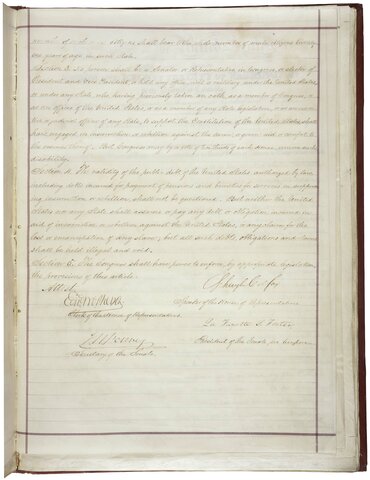 shall bear to the whole number of male citizens twenty-
one years of age in such State.
Section 3. No person shall be a Senator or Representative in Congress, or elector of
President and Vice President, or hold any office, civil or military, under the United States,
or under any State, who, having previously taken an oath, as a member of Congress, or
as an officer of the United States, or as a member of any State legislature, or as an execu-
tive or judicial officer of any State, to support the Constitution of the United States, shall
have engaged in insurrection or rebellion against the same, or given aid or comfort to
the enemies thereof. But Congress may by a vote of two-thirds of each House, remove such
disability.
Section 4. The validity of the public debt of the United States, authorized by law,
including debts incurred for payment of pensions and bounties for services in suppress-
ing insurrection or rebellion, shall not be questioned. But neither the United
States nor any State shall assume or pay any debt or obligation incurred in
aid of insurrection or rebellion against the United States, or any claim for the
loss or emancipation of any slave; but all such debts, obligations and claims
shall be held illegal and void.
Section 5. The Congress shall have power to enforce, by appropriate legislation,
the provisions of this article.
Attest
Schuyler Colfax
Edwd McPherson
Speaker of the House of Representatives.
Clerk of the House of Representatives.
La Fayette S. Foster
J. W. Forney
President of the Senate, pro tempore.
Secretary of the Senate.